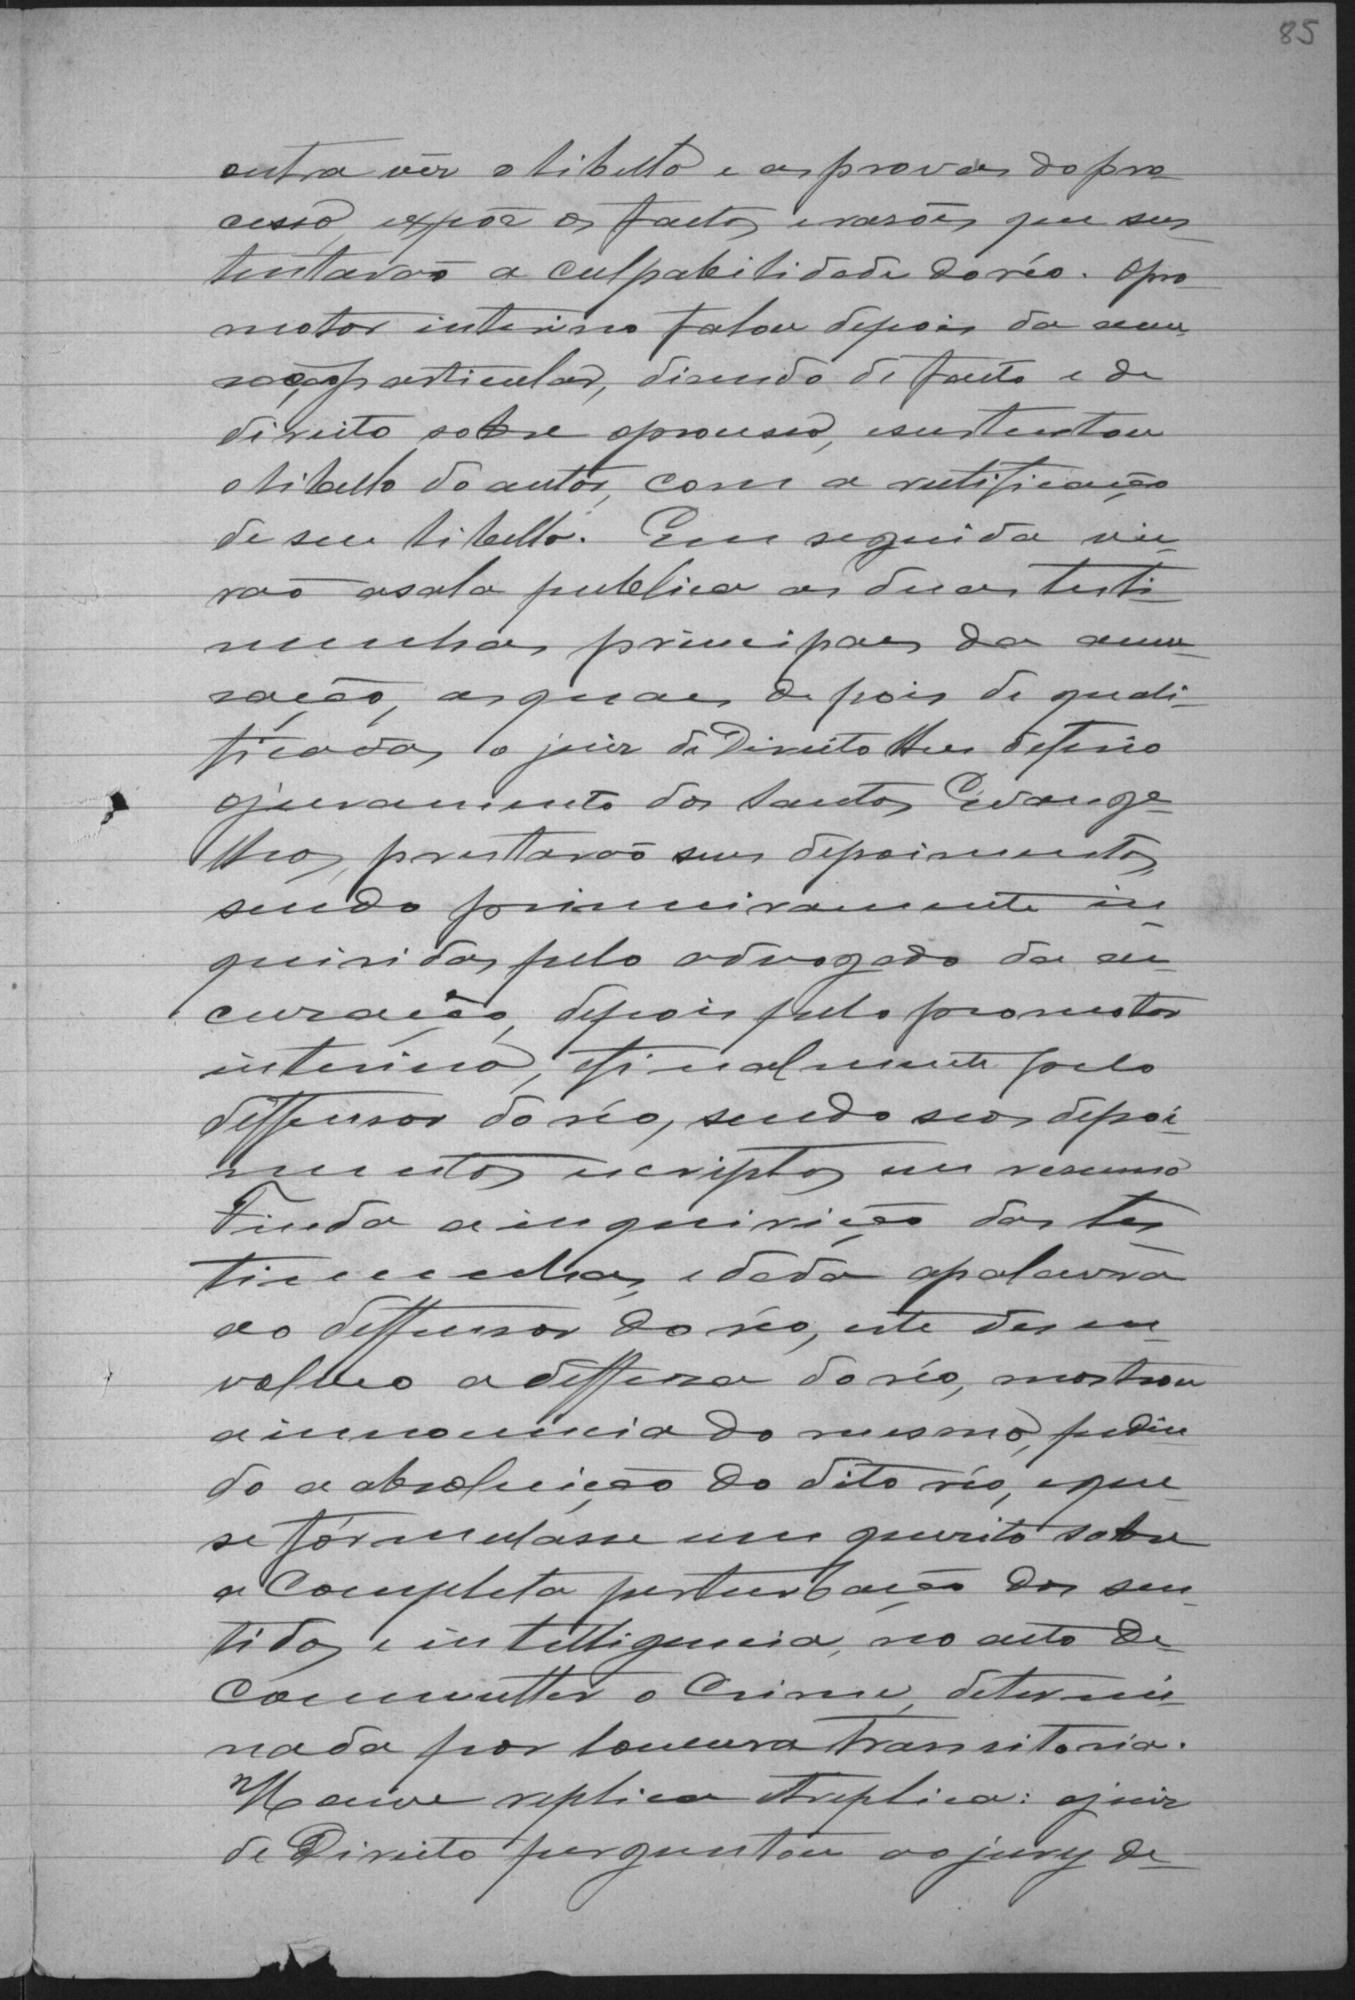 85
outra vêz o libello e as provas do pro
cesso, expôz os factos, e rasões que sus
tentavaõ a culpabilidade do réo. O pro
motor interino falou depois da accu
sação particular, disendo de facto e de
direito sobre o processo, e sustentou
o libello do autor, com a retificação
de seu libello. Em seguida vie
raõ a sala publica as duas testi
munhas principaes da accu
sação, as quaes depois de quali
ficadas, o juiz de Direito lhes deferio
o juramento dos Santos Evange
lhos, prestaraõ seus depoimentos,
sendo primeiramente in
quiridas pelo advogado da ac
cusação, depois pelo promotor
interino, e finalmente pelo
deffensor do réo, sendo seos depoi
mentos escriptos em resumo
Finda a inquirição das tes
timunhas, e dada a palavra
ao deffensor do réo, este desen
volveo a deffesa do réo, mostrou
a innocencia do mesmo, pedin
do a absolvição do dito réo, e que
se formulasse um quesito sobre
a completa perturbação dos sen
tidos e intelligencia, no acto de
commetter o crime, determi
nada por loucura transitoria.
Houve replica e treplica: o juiz
de Direito perguntou ao jury de